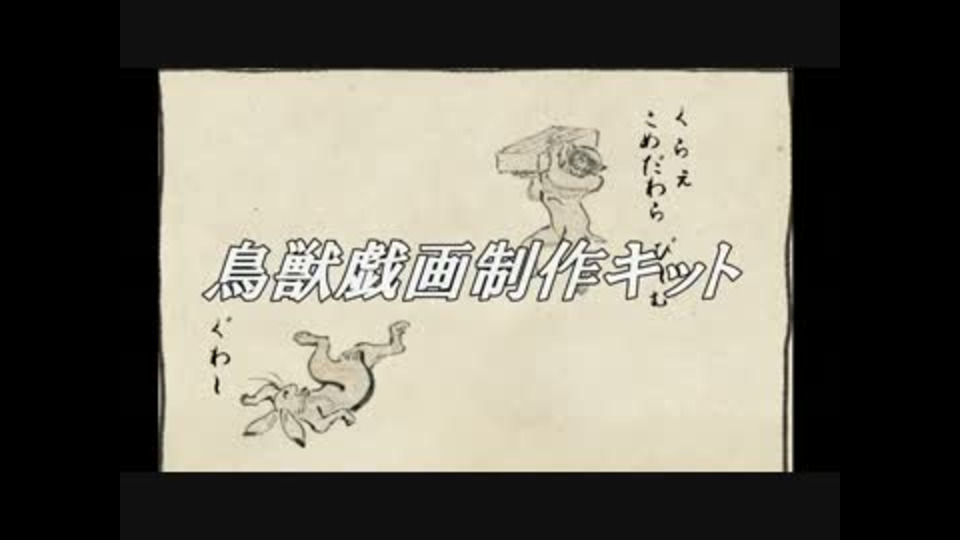 くらえ
こめだわら びーむ
鳥獣戯画制作キット
ぐわー